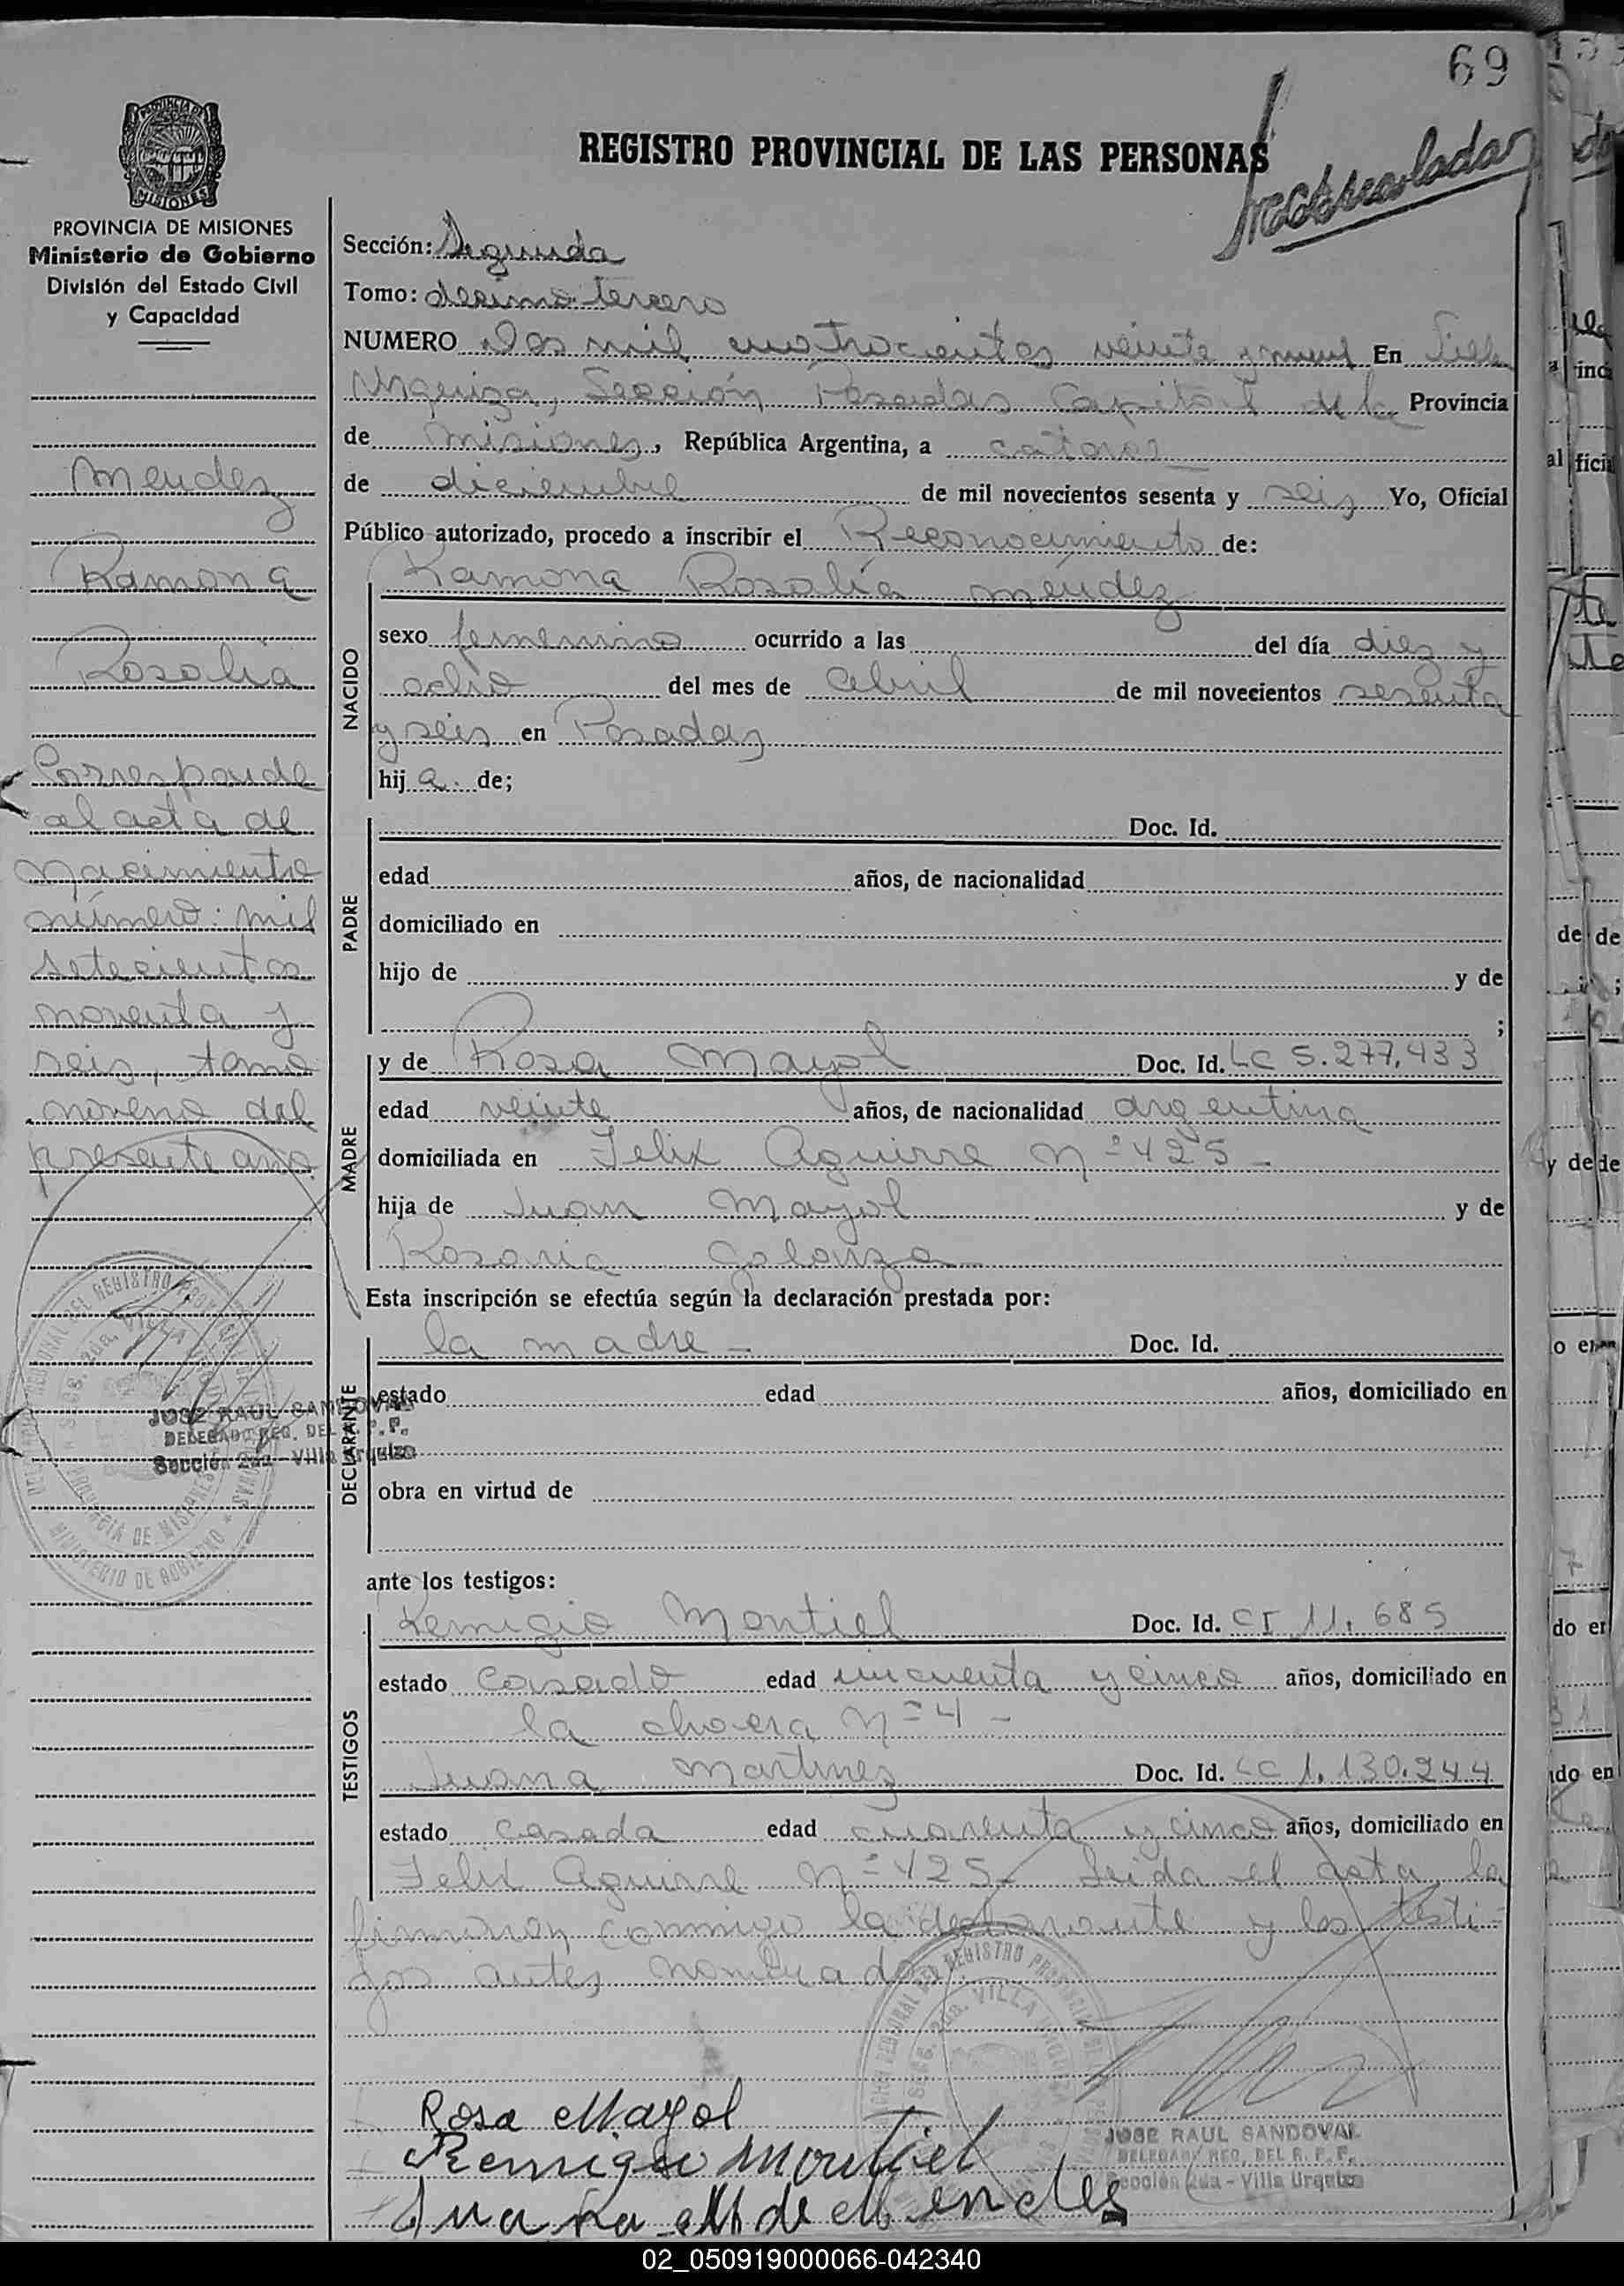 69
REGISTRO PROVINCIAL DE LAS PERSONAS
PROVINCIA DE MISIONES
Ministerio de Gobierno
División del Estado Civil
y Capacidad
Mendez
Ramona
Rosalia
Corresponde
al acta de
nacimiento
número: mil
setecientos
noventa y
seis, tomo
noveno del
presente año
JOSE RAUL SANDOVAL
DELEGADO REG. DEL R. P. P.
Sección 2da - Villa Urquiza
Sección: Segunda
Tomo: decimo tercero
NUMERO Dos mil cuatrocientos veinte y nueve En Villa
Urquiza, Sección Posadas Capital de la Provincia
de Misiones, República Argentina, a catorce
de diciembre de mil novecientos sesenta y seis Yo, Oficial
Público autorizado, procedo a inscribir el Reconocimiento de:
Ramona Rosalía Méndez
NACIDO
sexo femenino ocurrido a las del día diez y
ocho del mes de abril de mil novecientos sesenta
y seis en Posadas
hij a de;
PADRE
Doc. Id.
edad años, de nacionalidad
domiciliado en
hijo de y de
;
MADRE
y de Rosa Mayol Doc. Id. LC 5.277.433
edad veinte años, de nacionalidad argentina
domiciliada en Felix Aguirre Nº 425 -
hija de Juan Mayol y de
Rosaria Golonza
Esta inscripción se efectúa según la declaración prestada por:
DECLARANTE
la madre - Doc. Id.
estado edad años, domiciliado en
obra en virtud de
ante los testigos:
TESTIGOS
Remigio Montiel Doc. Id. CI 11.685
estado Casado edad cincuenta y cinco años, domiciliado en
la chacra Nº 4 -
Juana Martinez Doc. Id. LC 1.130.244
estado casada edad cuarenta y cinco años, domiciliado en
Felix Aguirre Nº 425 - Leida el acta, la
firmaron conmigo la declarante y los testi-
gos antes nombrados.
Rosa Mayol
Remigio Montiel
Juana M de Mendes
JOSE RAUL SANDOVAL
DELEGADO REG. DEL R. P. P.
Sección 2da - Villa Urquiza
02_050919000066-042340